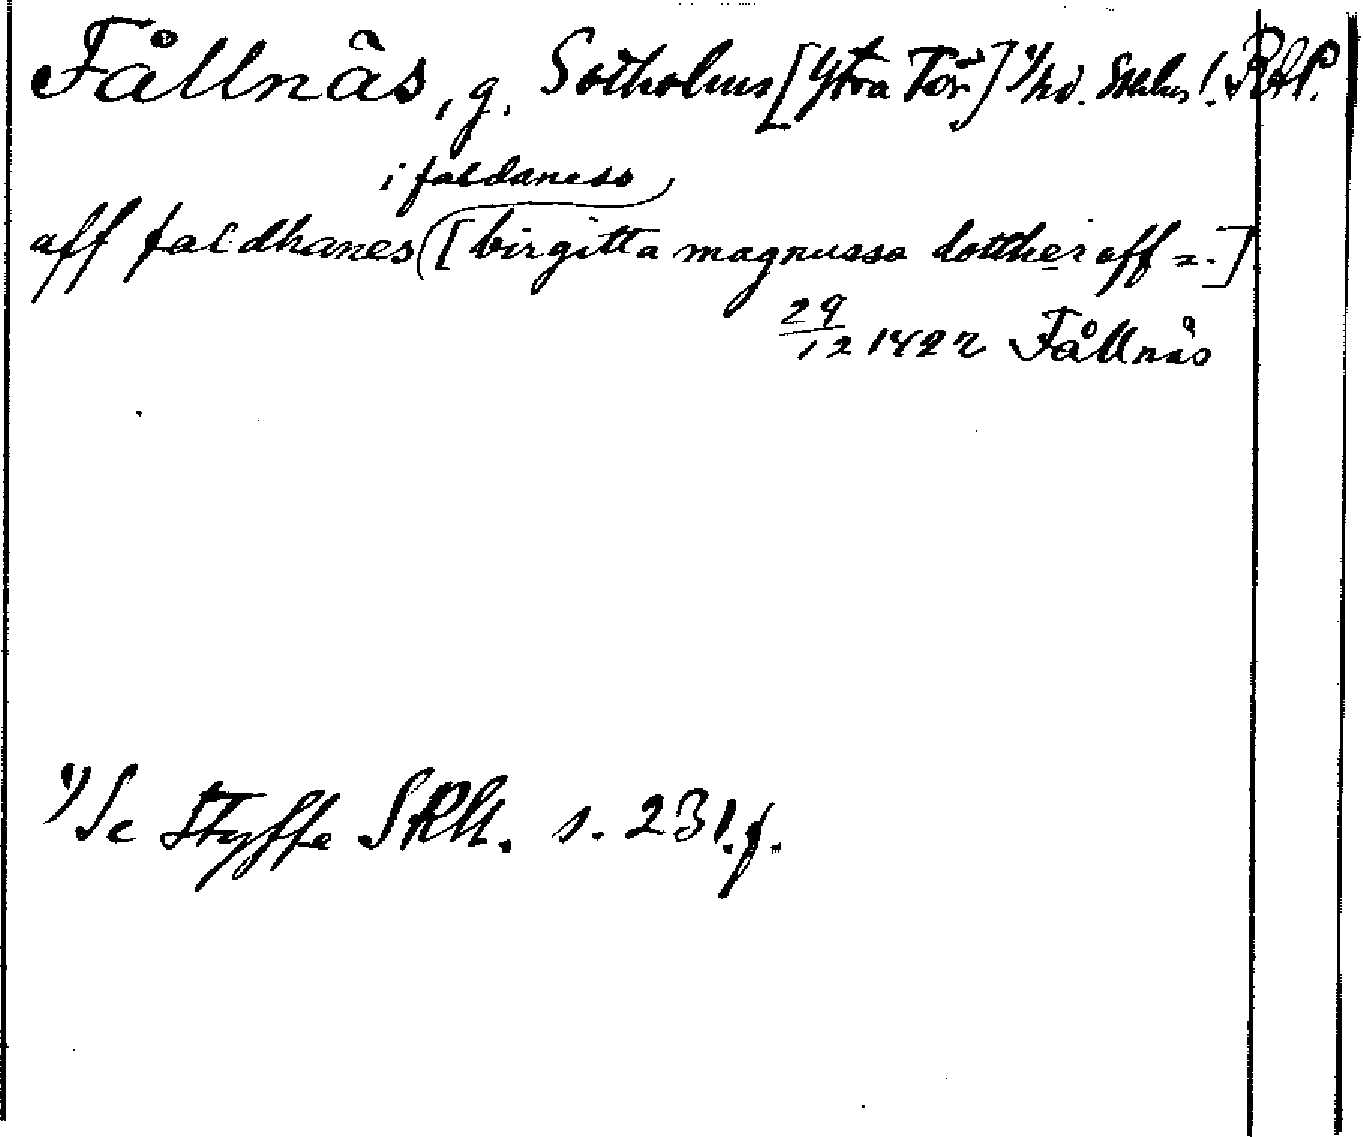 Fållnäs, g. Sotholms [Ytra Tör] ¹⁾ hd. Sthlms l. RAP.
i faldaness
aff faldhanes ([birgitta magnussa dotther aff =.]
29/12 1422 Fållnäs
¹⁾ Se Styffe SKU. s. 231.f.